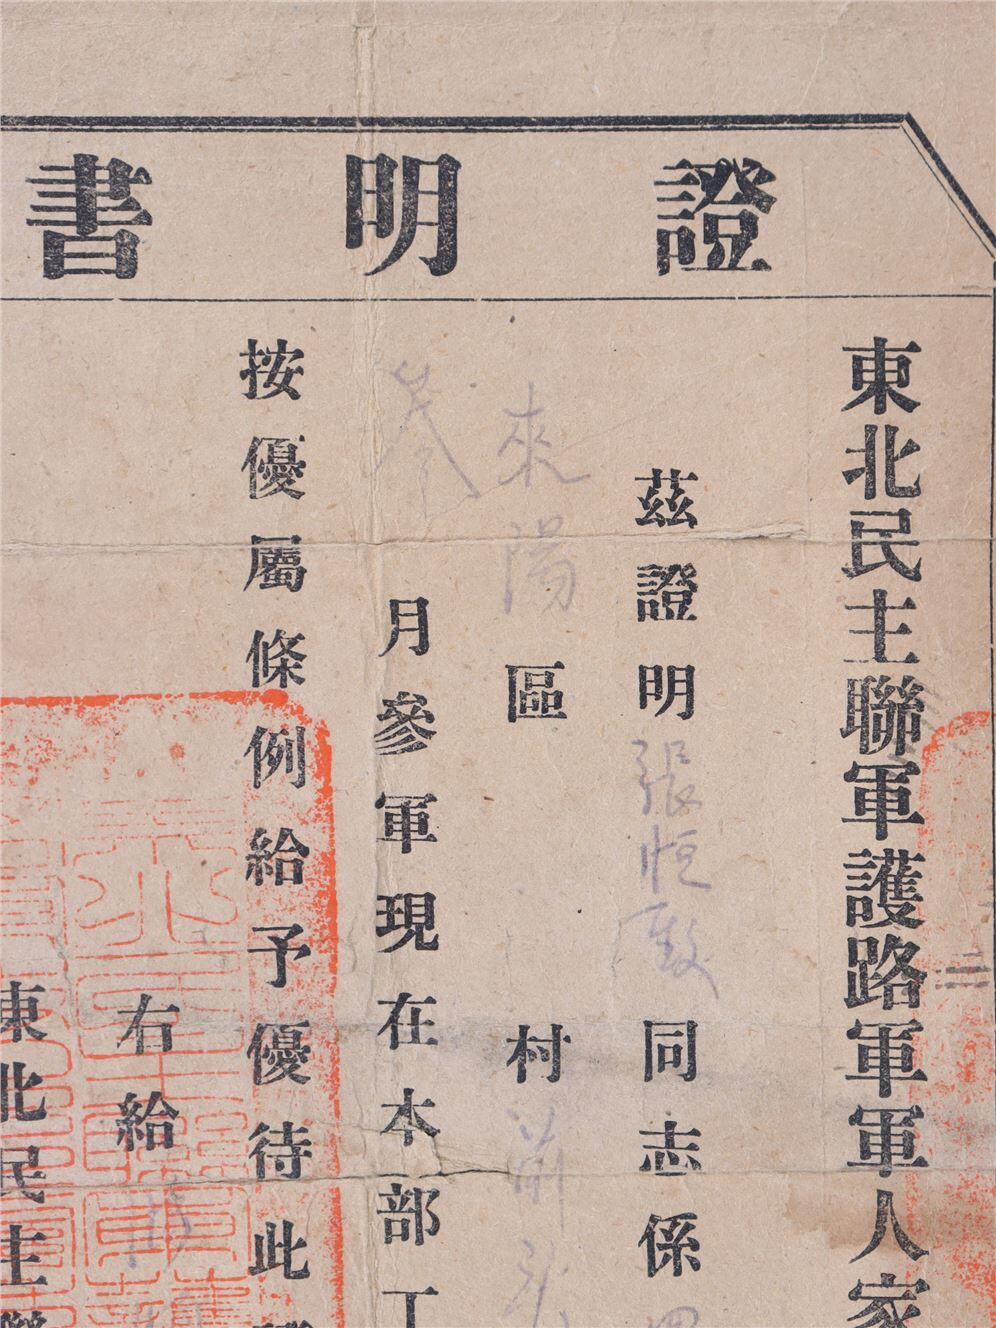 證明書
東北民主聯軍護路軍軍人家
茲證明張恒 同志係
來陽區 村
月參軍現在本部工
按優屬條例給予優待此
右給
東北民主聯